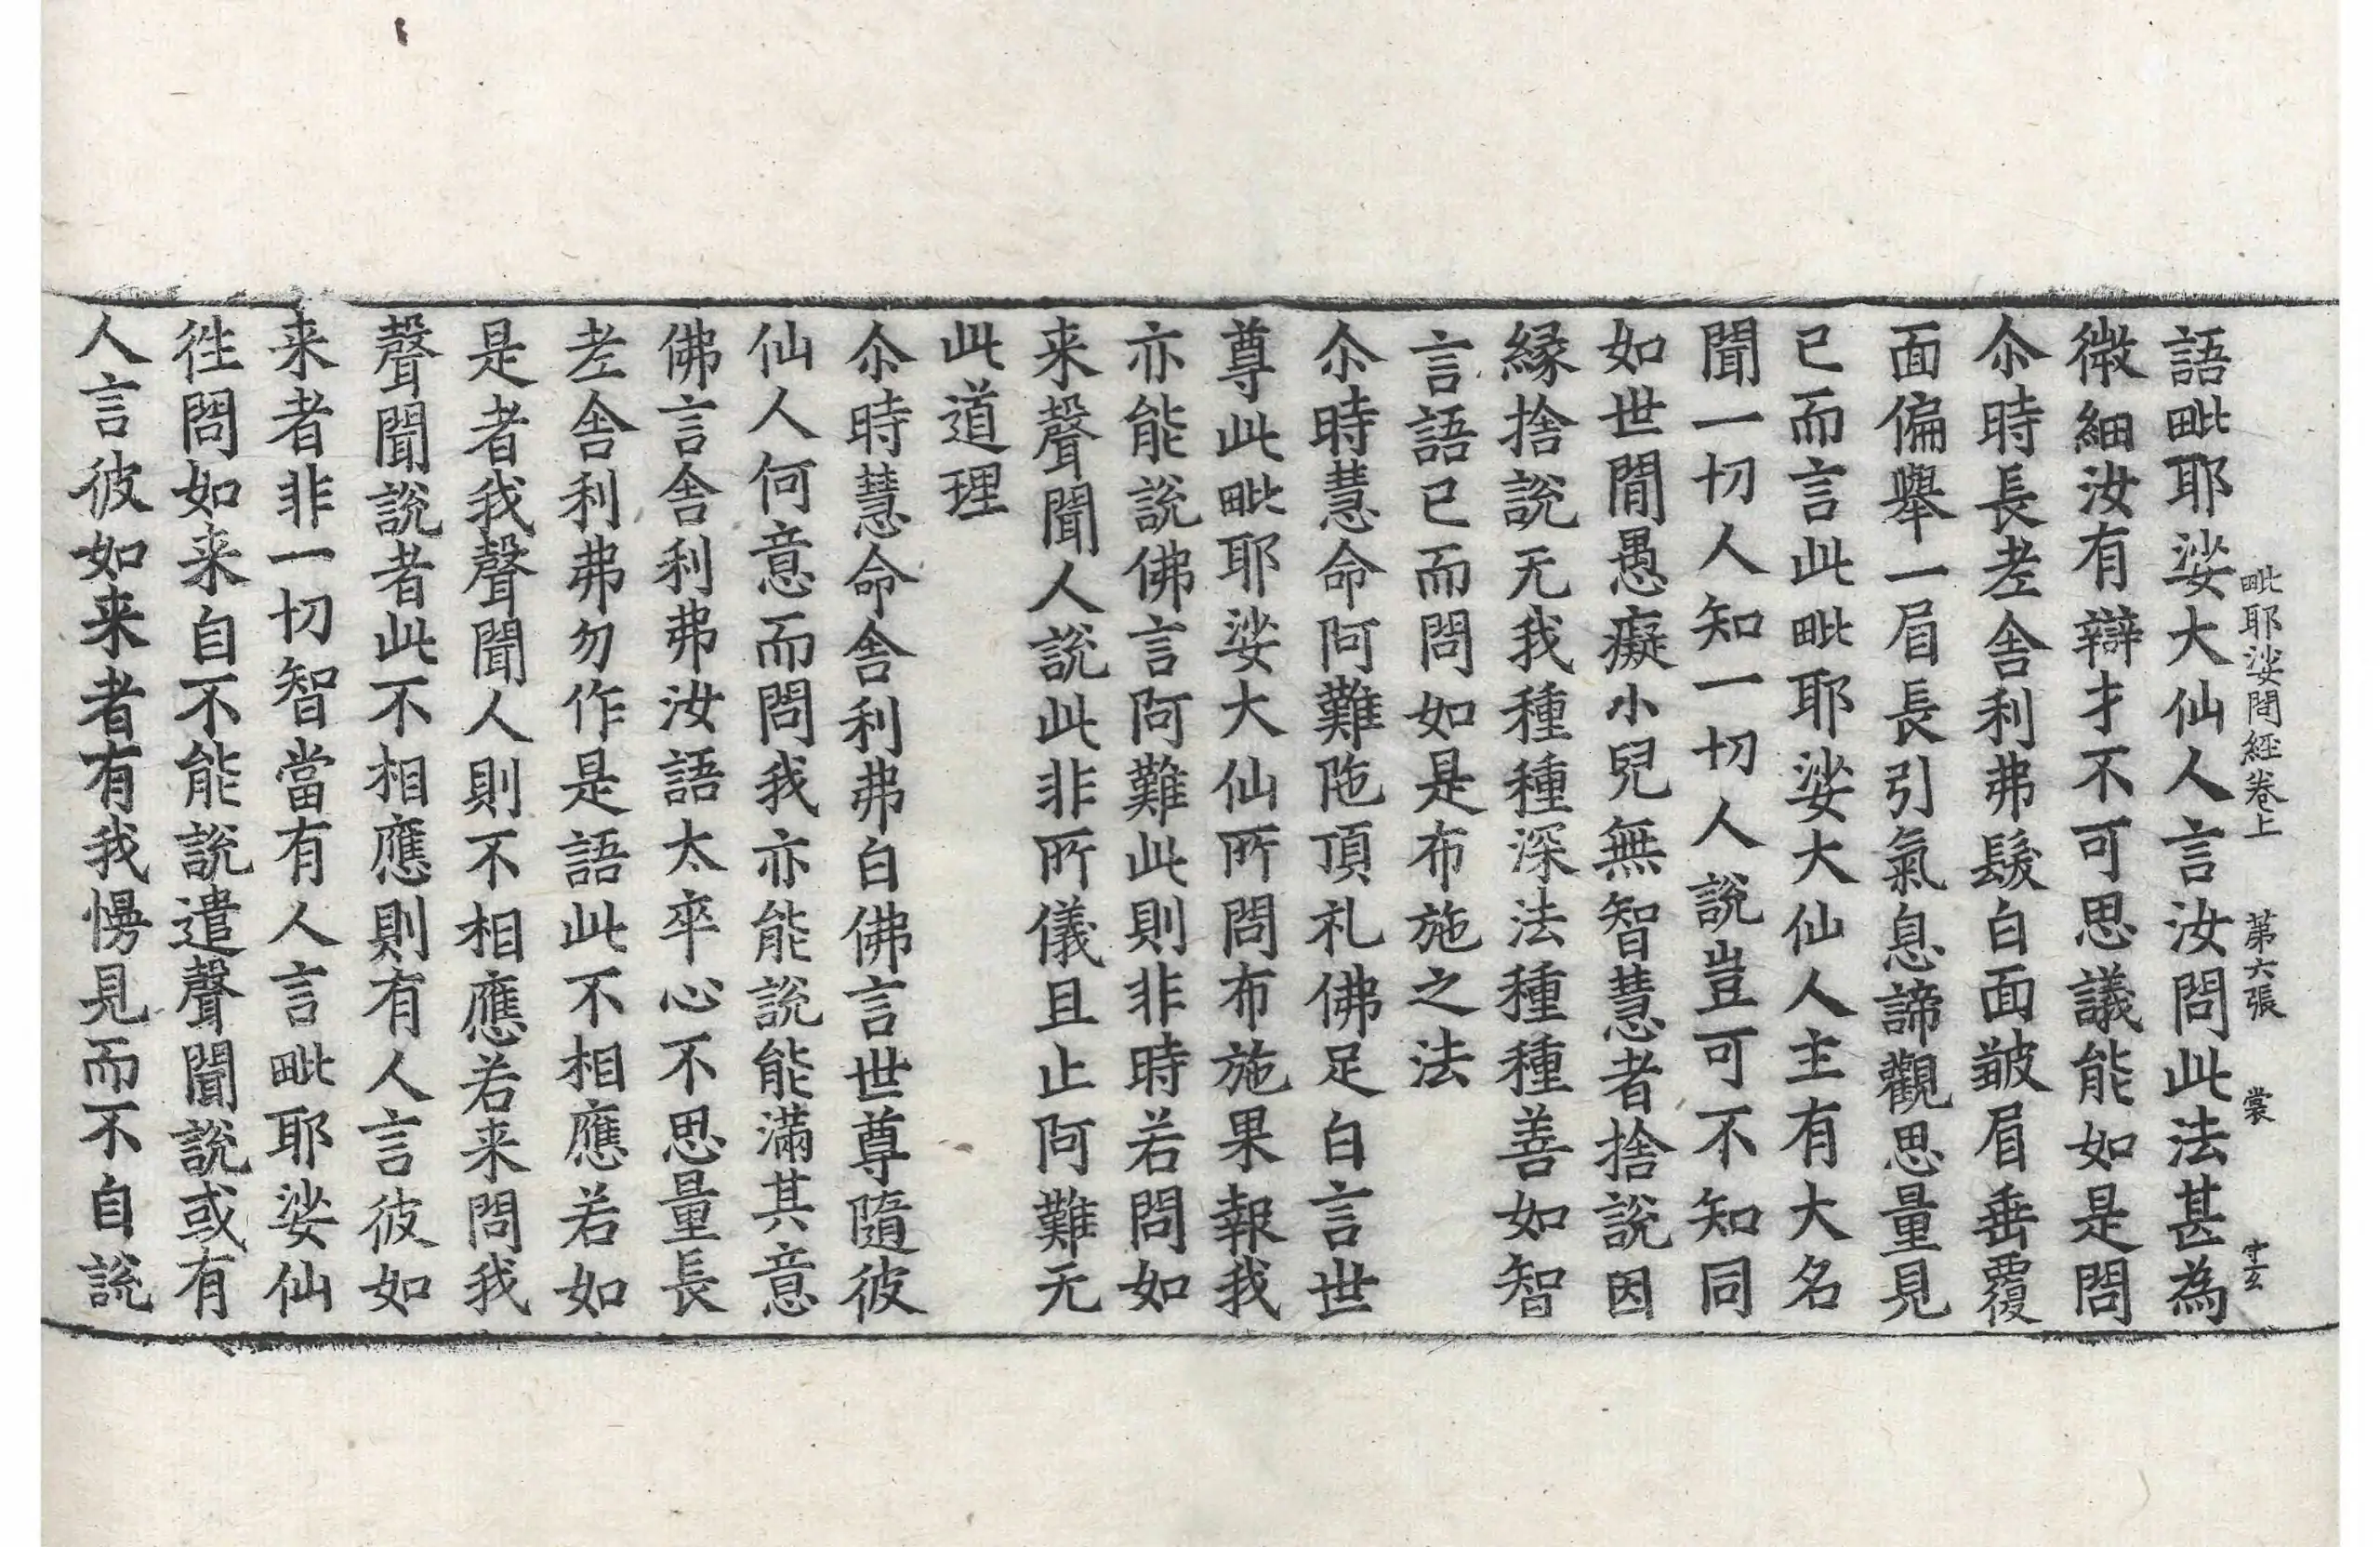 毗耶娑問經卷上 第六張 裳
語毗耶娑大仙人言汝問此法甚為
微細汝有辯才不可思議能如是問
尒時長老舍利弗髮白面皺眉垂覆
面偏舉一眉長引氣息諦觀思量見
已而言此毗耶娑大仙人主有大名
聞一切人知一切人說豈可不知同
如世間愚癡小兒無智慧者捨說因
緣捨說无我種種深法種種善如智
言語已而問如是布施之法
尒時慧命阿難陁頂礼佛足白言世
尊此毗耶娑大仙所問布施果報我
亦能說佛言阿難此則非時若問如
来聲聞人說此非所儀且止阿難无
此道理
尒時慧命舍利弗白佛言世尊隨彼
仙人何意而問我亦能說能滿其意
佛言舍利弗汝語太卒心不思量長
老舍利弗勿作是語此不相應若如
是者我聲聞人則不相應若来問我
聲聞說者此不相應則有人言彼如
来者非一切智當有人言毗耶娑仙
徃問如来自不能說遣聲聞說或有
人言彼如来者有我慢見而不自說